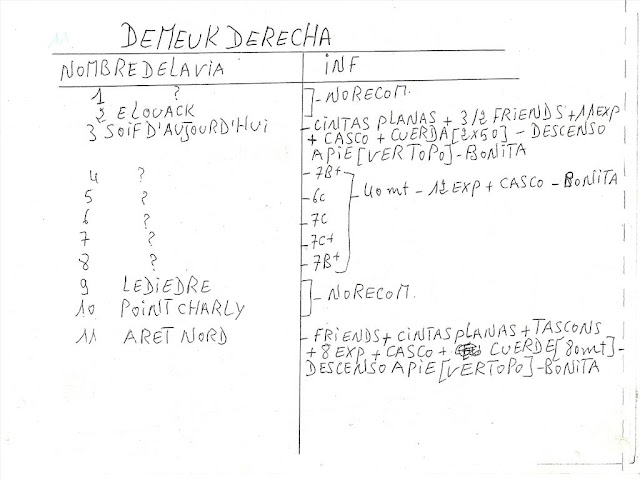 11.
DEMEUK DERECHA
NOMBRE DE LA VIA INF
1 ?
2 ELOUACK ]-NORECOM.
3 SOIF D'AUJOURD'HUI - CINTAS PLANAS + 3/2 FRIENDS + 11 EXP
+ CASCO + CUERDA [2x50] - DESCENSO
APIE [VERTOPO] - BONITA
4 ? - 7B+
5 ? - 6C - 40mt - 12 EXP + CASCO - BONITA
6 ? - 7C
7 ? - 7C+
8 ? - 7B+
9 LEDIEDRE
10 POINT CHARLY ]- NORECOM.
11 ARET NORD - FRIENDS + CINTAS PLANAS + TASCONS
+ 8 EXP + CASCO + CUERDE [80mt] -
DESCENSO APIE [VERTOPO] - BONITA